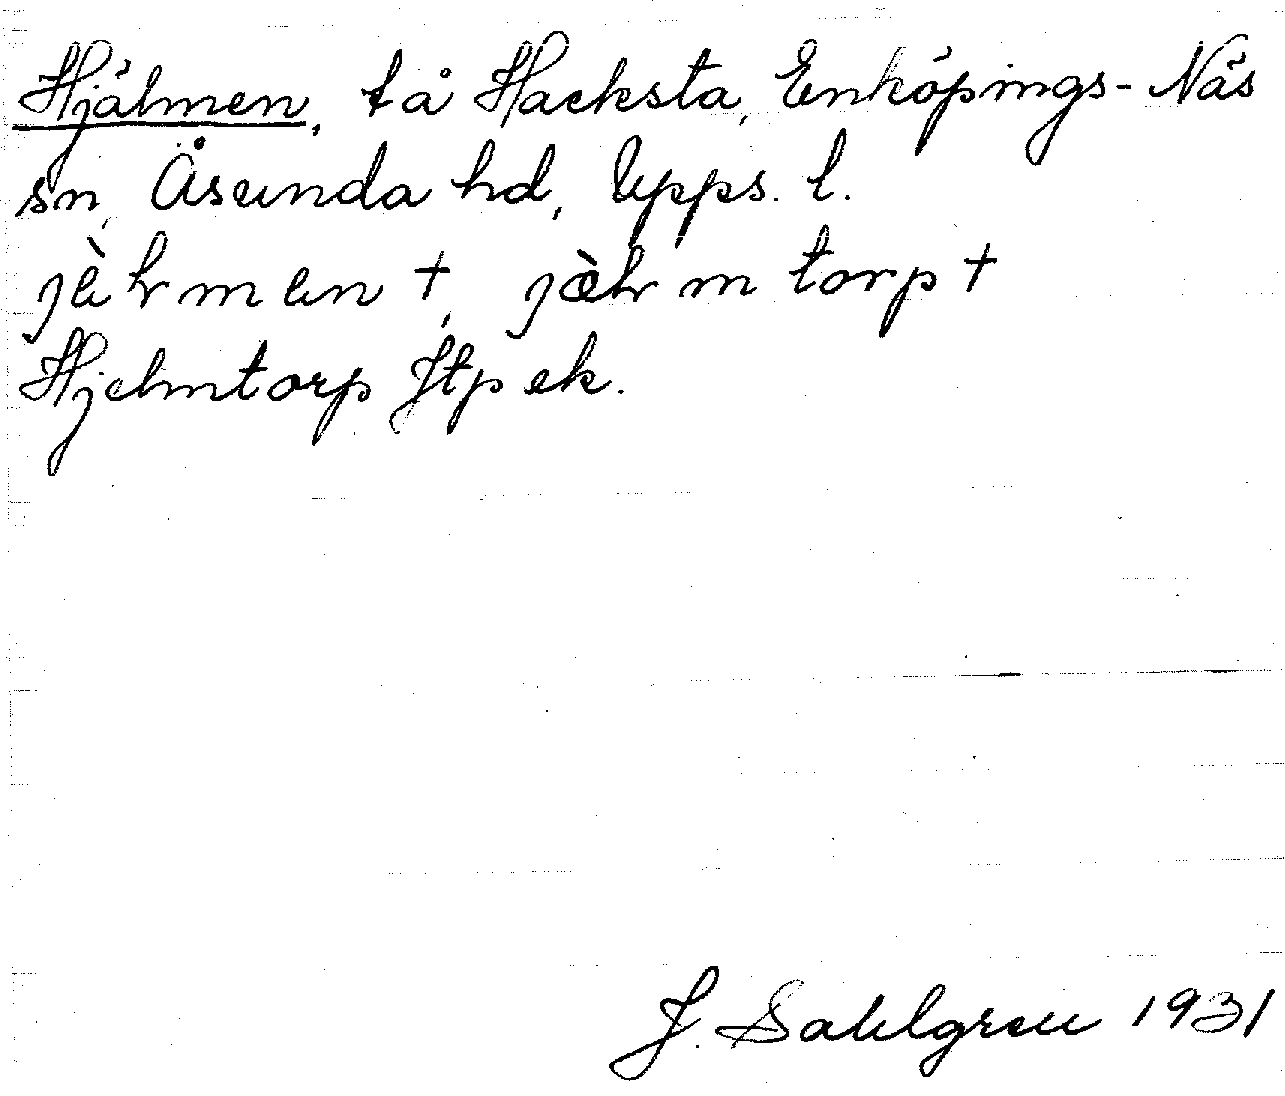 Hjälmen, få Hacksta, Enköpings-Näs
sn, Åsunda hd, Upps. l.
torp +
Hjelmtorp Jtp ek.
J. Sahlgren 1931